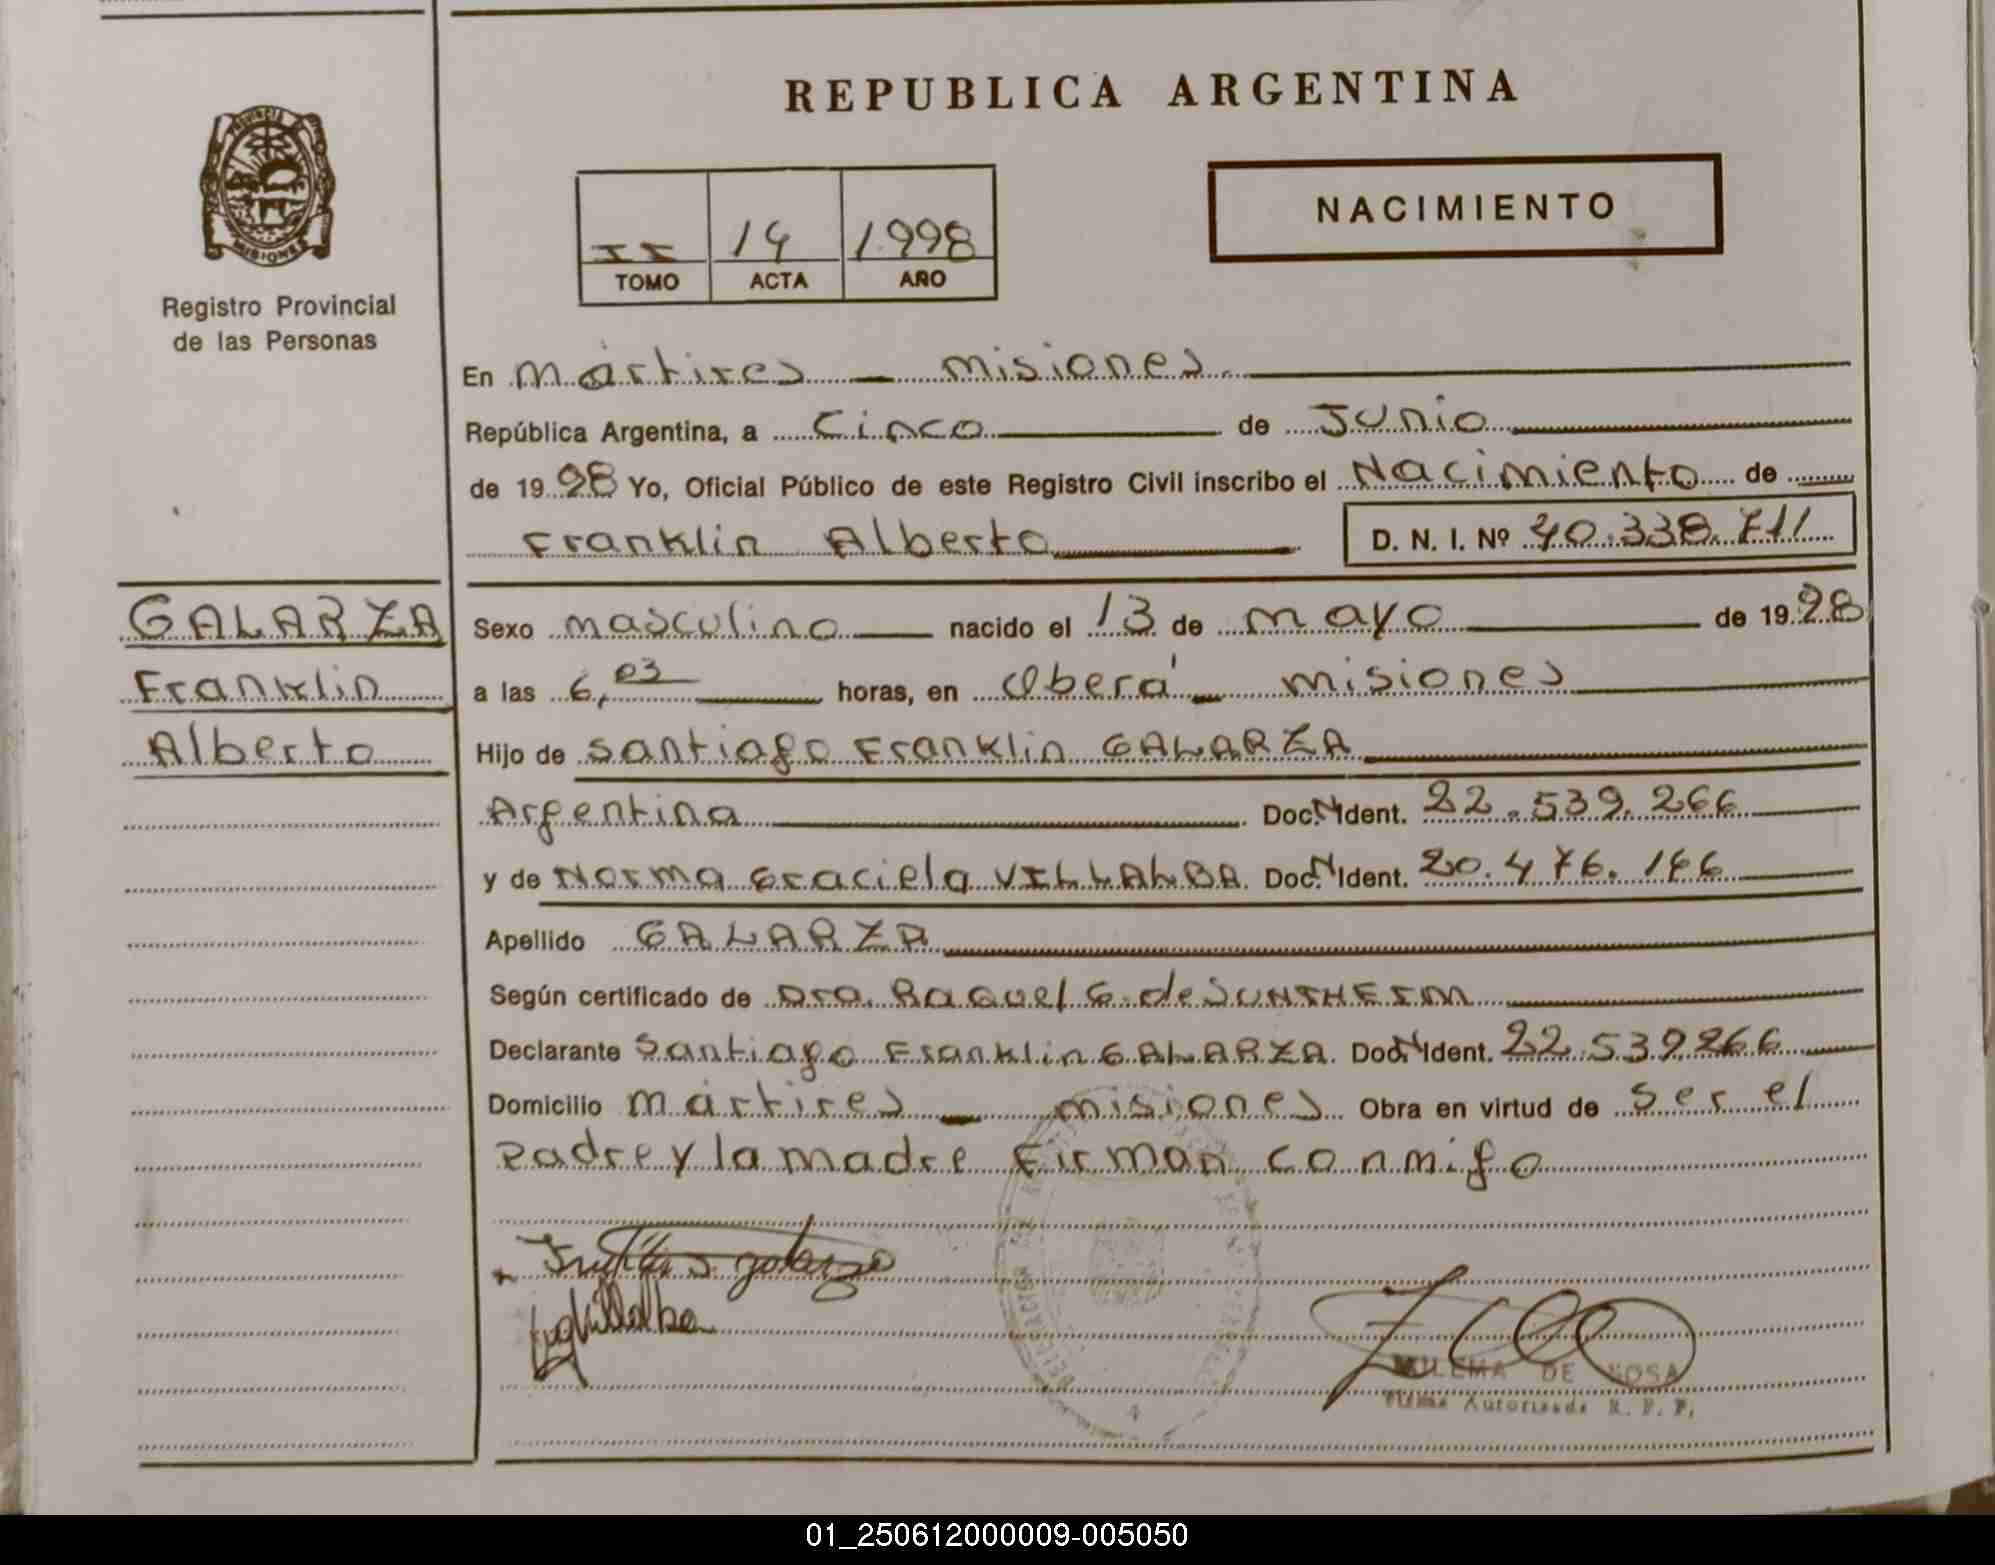 REPUBLICA ARGENTINA
PROVINCIA DE MISIONES
Registro Provincial
de las Personas
NACIMIENTO
II 14 1998
TOMO ACTA AÑO
En Mártires - Misiones
República Argentina, a Cinco de Junio
de 1998 Yo, Oficial Público de este Registro Civil inscribo el Nacimiento de
Franklin Alberto D. N. I. Nº 40.338.711
GALARZA
Franklin
Alberto
Sexo masculino nacido el 13 de mayo de 1998
a las 6,03 horas, en Oberá - Misiones
Hijo de Santiago Franklin GALARZA
Argentina Doc. N Ident. 22.539.266
y de Norma Graciela VILLALBA. Doc. N Ident. 20.476.166
Apellido GALARZA
Según certificado de Dra. Raquel G. de SUNTHEIM
Declarante Santiago Franklin GALARZA. Doc. N Ident. 22.539266
Domicilio Mártires - Misiones Obra en virtud de ser el
Padre y la madre Firman conmigo
Villalba
DE SOSA
Firma Autorizada R. P. P.
01_250612000009-005050